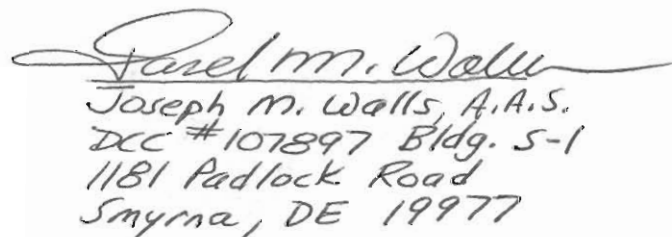 Joseph M. Walls
Joseph M. Walls, A.A.S.
DCC #107897 Bldg. S-1
1181 Padlock Road
Smyrna, DE 19977